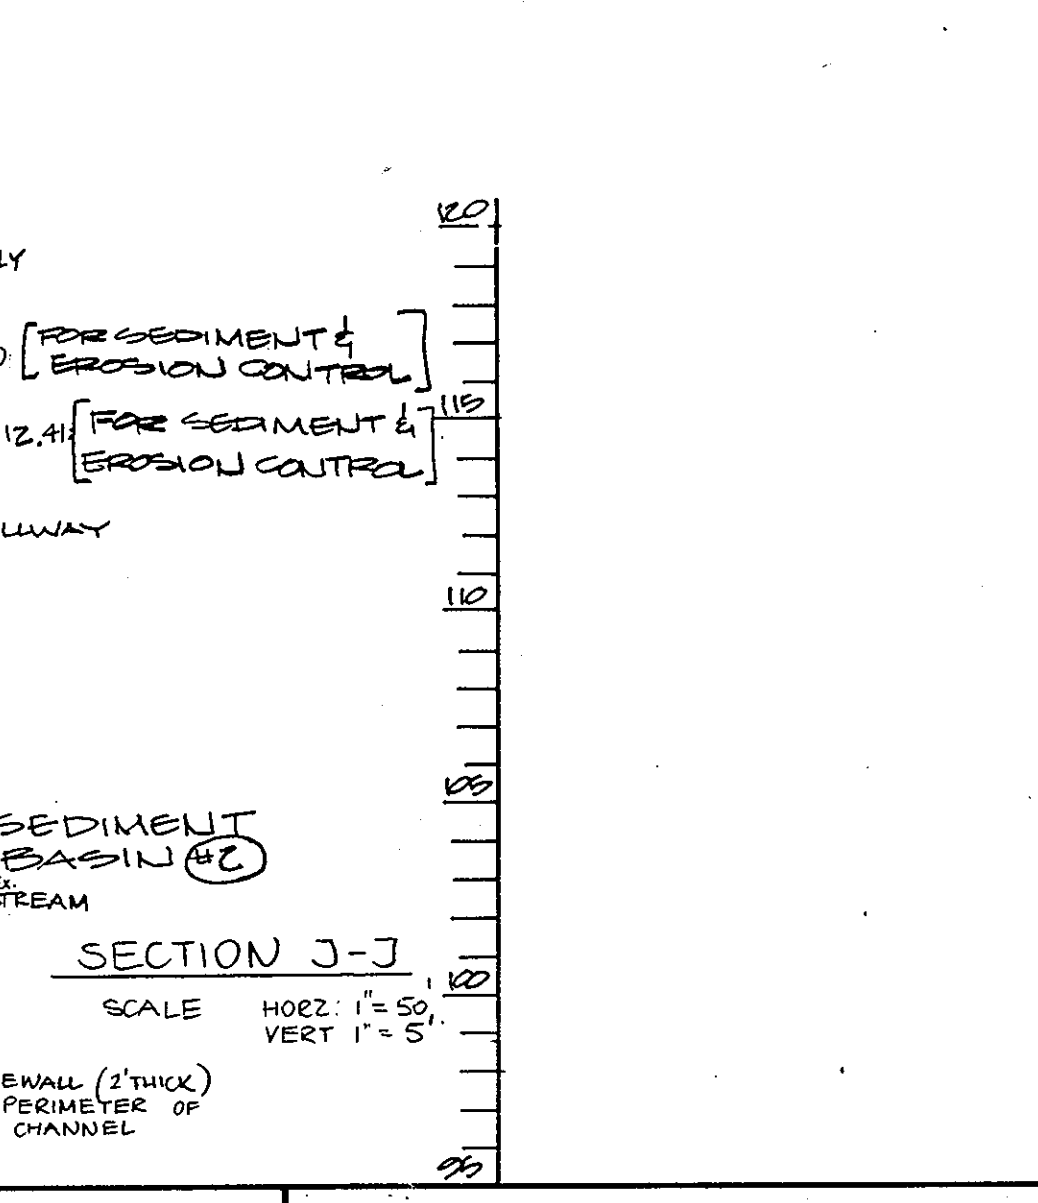 120
LY
[FOR SEDIMENT &
EROSION CONTROL]
115
12.41± [FOR SEDIMENT &
EROSION CONTROL]
110
105
SEDIMENT
BASIN #2
EX.
STREAM
SECTION J-J
100
SCALE HORZ: 1"= 50'
VERT 1" = 5'
EWALL (2'THICK)
PERIMETER OF
CHANNEL
95